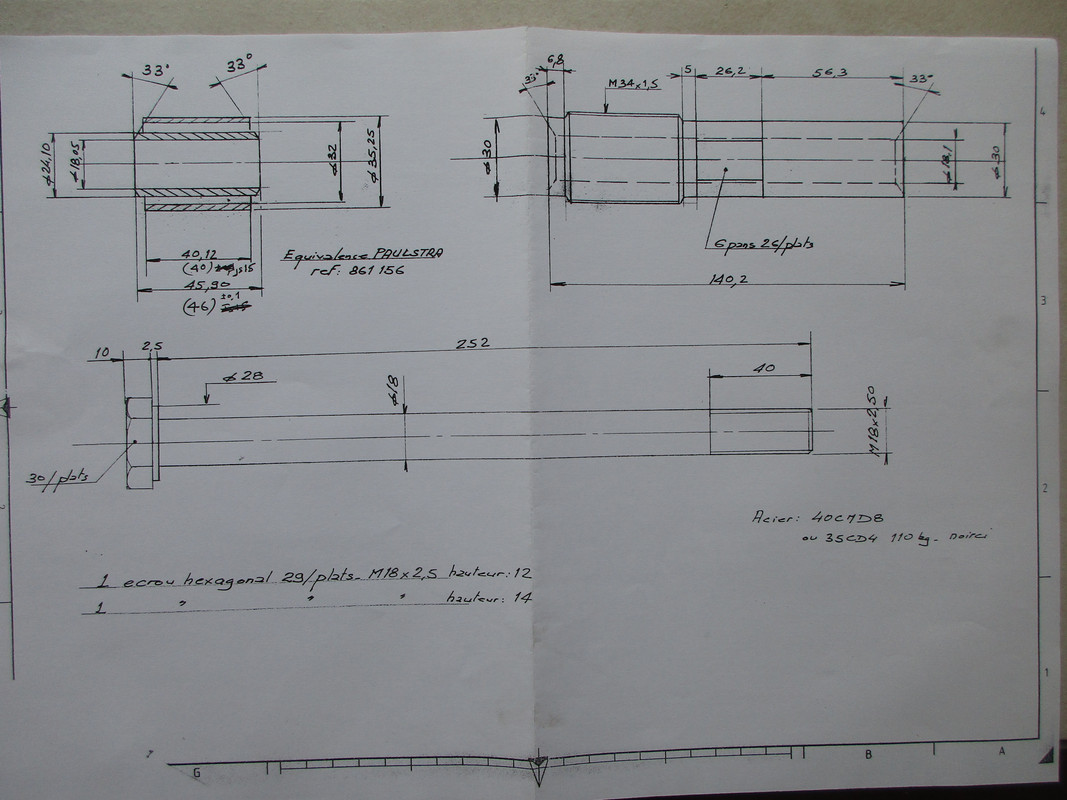 33°
33°
ø24,10
ø18,05
ø32
ø35,25
40,12
(40) js15
45,90
(46) ±0,1
Equivalence PAULSTRA
ref: 861 156
6,8
33°
M34x1,5
5
26,2
56,3
33°
ø30
ø18,1
ø30
6 pans 26/plats
140,2
10
2,5
252
ø28
ø18
40
M18x2,50
30/plats
Acier: 40CMD8
ou 35CD4 110 kg_ noirci
1 ecrou hexagonal 29/plats_ M18x2,5 hauteur: 12
1 " " " hauteur: 14
4
3
2
1
G
B
A